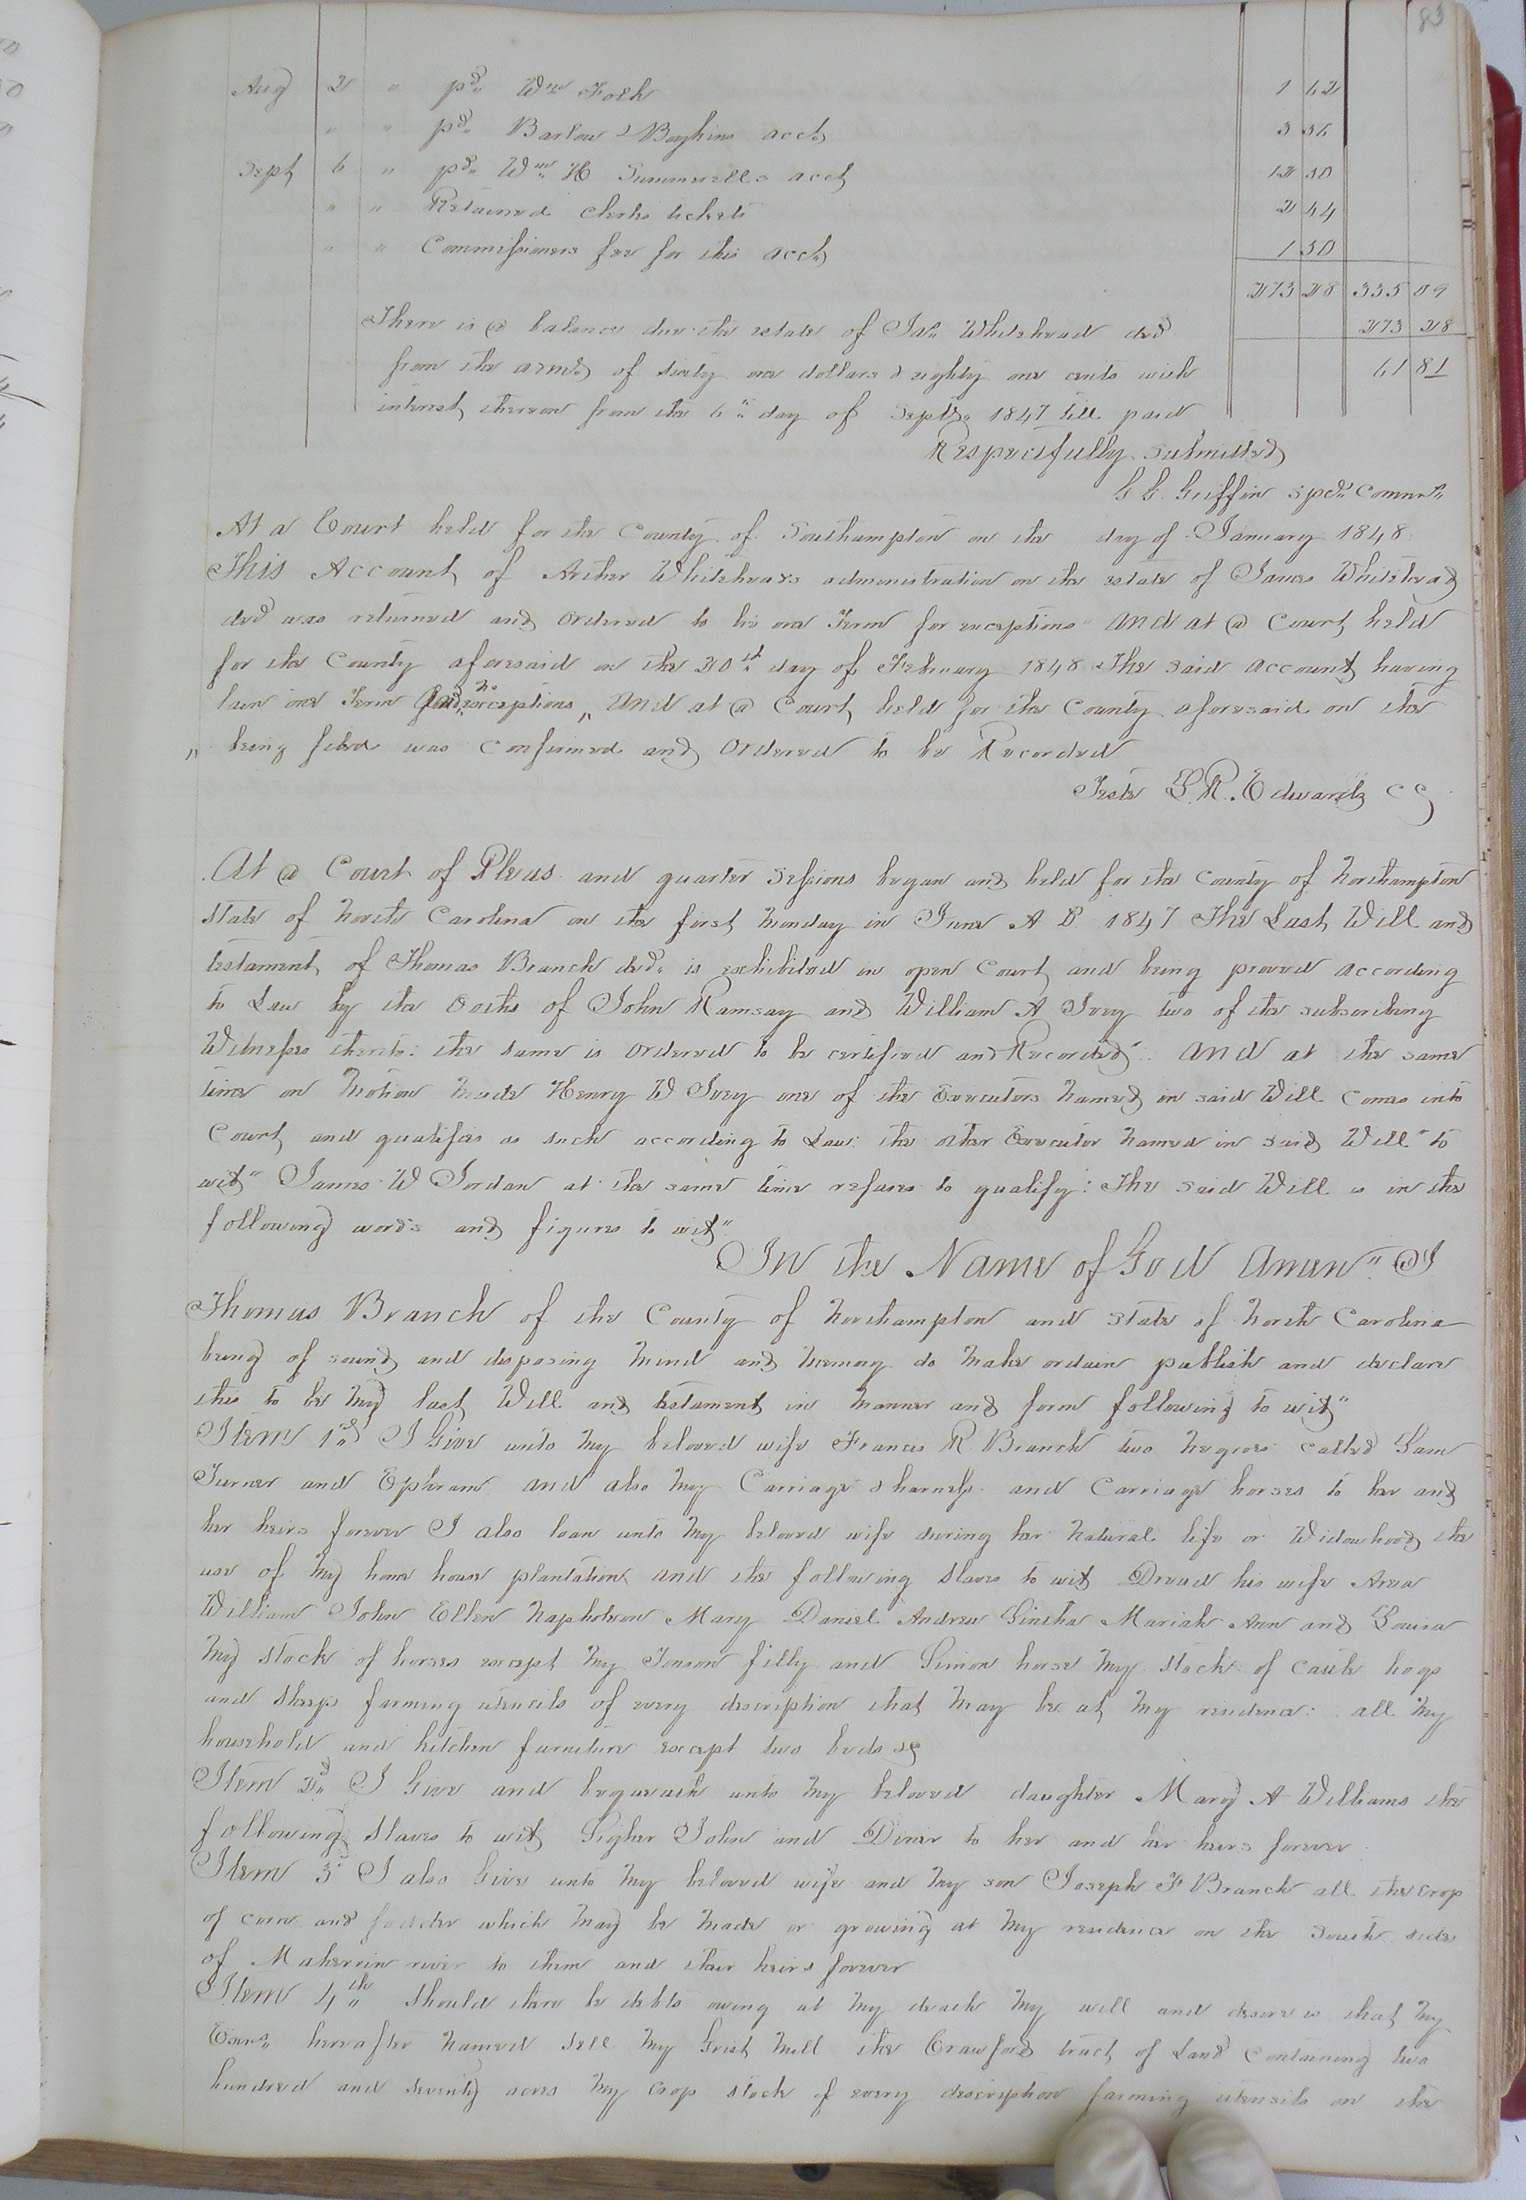 83
Aug 2 " pd. Wm Folk 1 62
" " pd. Barlow & Boykins acct 3 36
Sept 6 " pd. Wm H Summerells acct 12 50
" " Retained Clerks tickets 2 44
" " Commissioners fee for this acct 1 50
273 28 335 09
There is a balance due the estate of Jas. Whitehead decd 273 28
from the admr. of sixty one dollars & eighty one cents with 61 81
interest thereon from the 6th day of Septr. 1847 till paid
Respectfully submitted
Griffin spcl. Commr.
At a Court held for the County of Southampton on the day of January 1848
This Account of Arther Whiteheads administration on the estate of James Whitehead
decd was returned and Ordered to lie one Term for exceptions And at a Court held
for the County aforesaid on the 20th day of February 1848 The said account having
lain one Term and no exceptions " And at a Court held for the County aforesaid on the
" being filed was Confirmed and Ordered to be Recorded
Teste L. R. Edwards CC
At a Court of Pleas and quarter Sessions began and held for the County of Northampton
State of North Carolina on the first Monday in June A D 1847 The Last Will and
testament of Thomas Branch decd. is exhibited in open Court and being proved according
to Law by the Oaths of John Ramsay and William A Ivey two of the subscribing
Witnesses thereto: the same is Ordered to be certified and Recorded. And at the same
time on Motion Made Henry W Ivey one of the Executors Named in said Will Comes into
Court and qualifies as such according to Law: the other Executor Named in said Will "to
wit" James W Jordan at the same time refuses to qualify: The said Will is in the
following words and figures to wit"
In the Name of God Amen". I
Thomas Branch of the County of Northampton and State of North Carolina
being of sound and disposing Mind and Memory do Make ordain publish and declare
this to be My last Will and testament in Manner and form following to wit"
Item 1st I Give unto My beloved wife Frances R Branch two Negroes called Sam
Turner and Ephram and also My Carriage & harness and Carriage horses to her and
her heirs forever I also loan unto My beloved wife during her Natural life or Widowhood the
use of My home house plantation and the following Slaves to wit Dread his wife Area
William John Ellen Napholeon Mary Daniel Andrew Gincha Mariah Ann and Louisa
My Stock of horses except My Jonson filly and Simon horse My Stock of Cattle hogs
and Sheeps farming utencils of every description that May be at My residence: all My
household and kitchen furniture except two beds &c
Item 2d. I Give and bequeath unto My beloved daughter Mary A Williams the
following Slaves to wit John and Diner to her and her heirs forever
Item 3d I also Give unto My beloved wife and My son Joseph F Branch all the Crop
of corn and fodder which May be Made or growing at My residence on the South side
of Maherrin river to them and their heirs forever
Item 4th Should there be debts owing at My death My will and desire is that My
Exors. hereafter Named Sell My Grist Mill the Crawford tract of Land Containing two
hundred and Seventy acres My Crop Stock of every description farming utensils on the